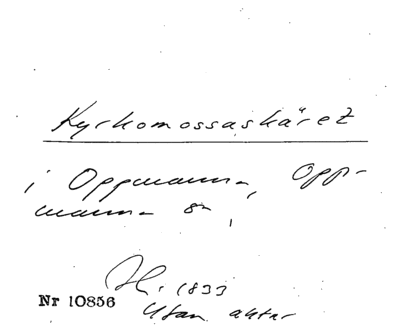 Kyrkomossaskäret
i Oppmanna, Opp-
manna sn,
H. 1833
Nr 10856
Utan aktnr